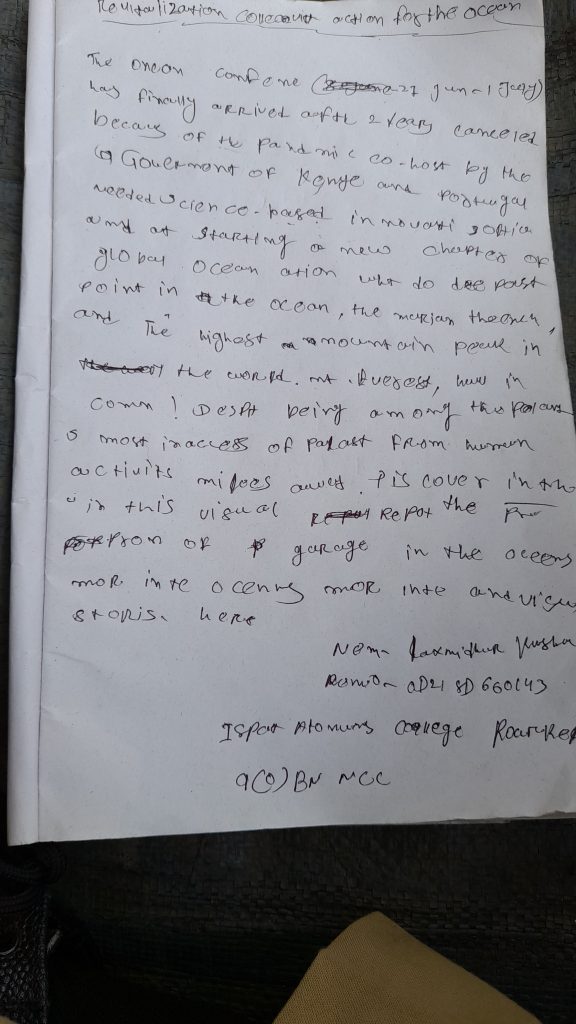 Revitalization coveaust action for the ocean
The oncan confene (27 Jun - 1 July)
has finally arrived aofth 2 years canceled
becaus of the pandmic co-host by the
Government of Kenye and Portugal
needed science-based innovati
aimd at starting a new chapter of
global ocean ation what do dee past
point in the ocean, the marian theench,
and The highest mountain peak in
the world. mt. Everest, have in
comm! Despt being among the
most inaccess of palast from human
activits miloes away. Discover in the
in this visual Repot the
prom of garage in the oceens
mor inte ocenns mor inte and
storis. here
Nem- Laxmidhur
OD21 SD 660143
Ispat college
9(0) BN NCC